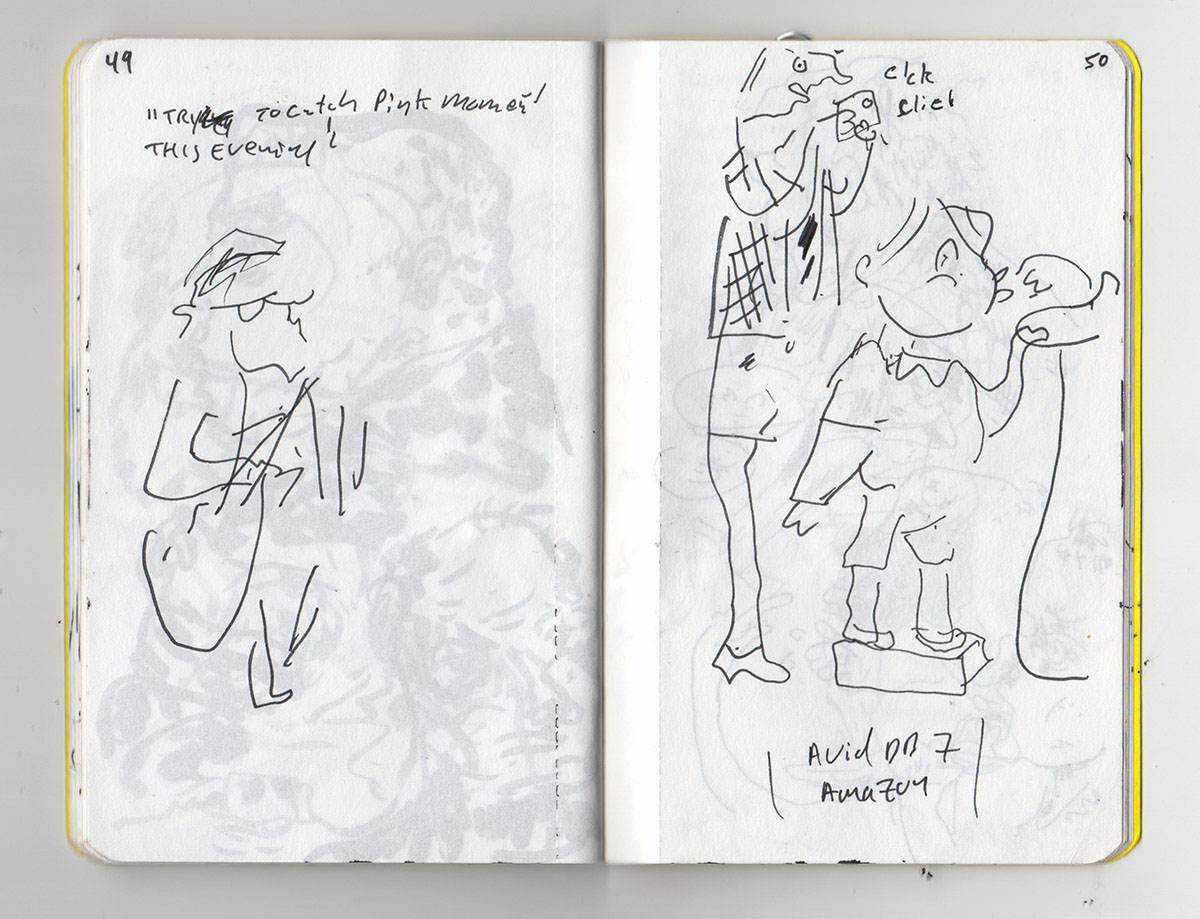 49
"TRY TO Catch Pink Moment
THIS Evening!
50
click
click
Avid DB 7
Amazon